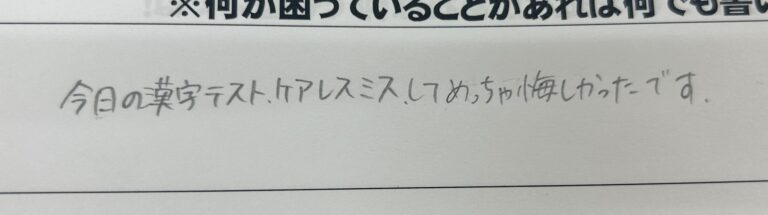 ※何か困っていることがあれば何でも書い
今日の漢字テスト、ケアレスミス、してめっちゃ悔しかったです.